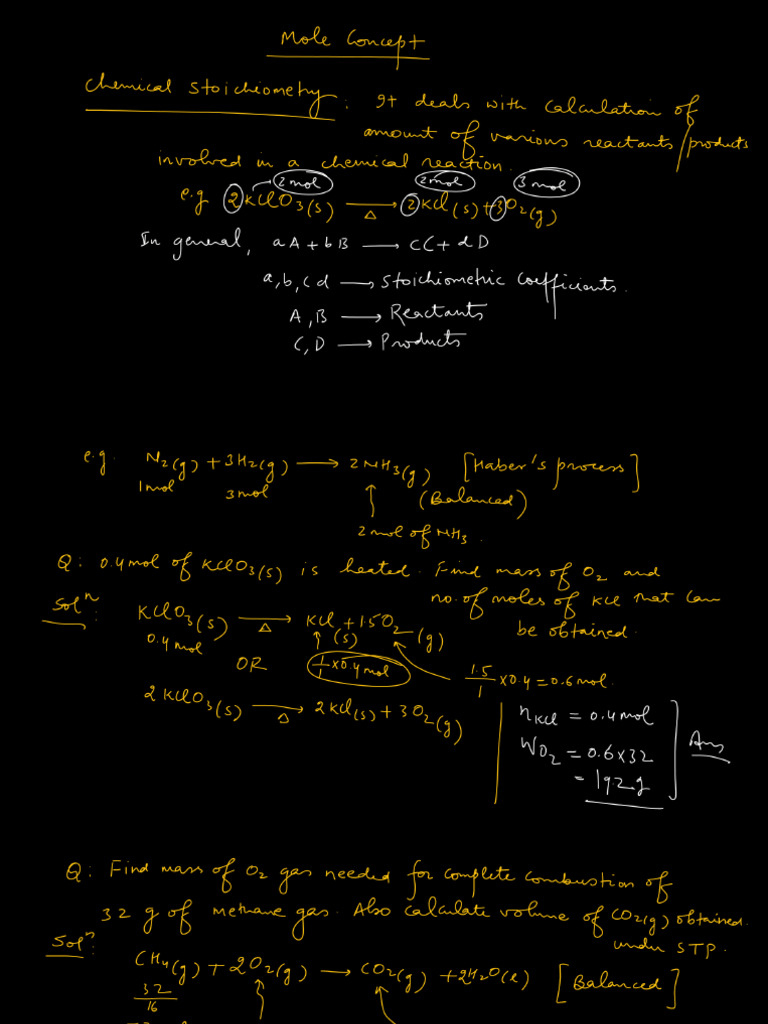 Mole Concept
Chemical Stoichiometry : It deals with calculation of
amount of various reactants/products
involved in a chemical reaction.
2mol 2mol 3mol
e.g 2KClO3(s) →Δ 2KCl(s)+3O2(g)
In general, aA+bB → cC+dD
a,b,c d → Stoichiometric coefficients.
A,B → Reactants
C,D → Products
e.g. N2(g)+3H2(g) → 2NH3(g) [Haber's process]
1mol 3mol (Balanced)
2 mol of NH3.
Q: 0.4mol of KClO3(s) is heated. Find mass of O2 and
no. of moles of KCl that can
be obtained.
Soln: KClO3(s) →Δ KCl+1.5O2(g)
(s)
0.4mol
OR 1/1 x0.4mol 1.5/1 x0.4=0.6mol.
2KClO3(s) →Δ 2KCl(s)+3O2(g)
nKCl = 0.4mol
WO2 = 0.6x32
= 19.2g
Ans
Q: Find mass of O2 gas needed for complete combustion of
32 g of methane gas. Also calculate volume of CO2(g) obtained
under STP.
Soln:
CH4(g)+2O2(g) → CO2(g) +2H2O(l) [Balanced]
32/16